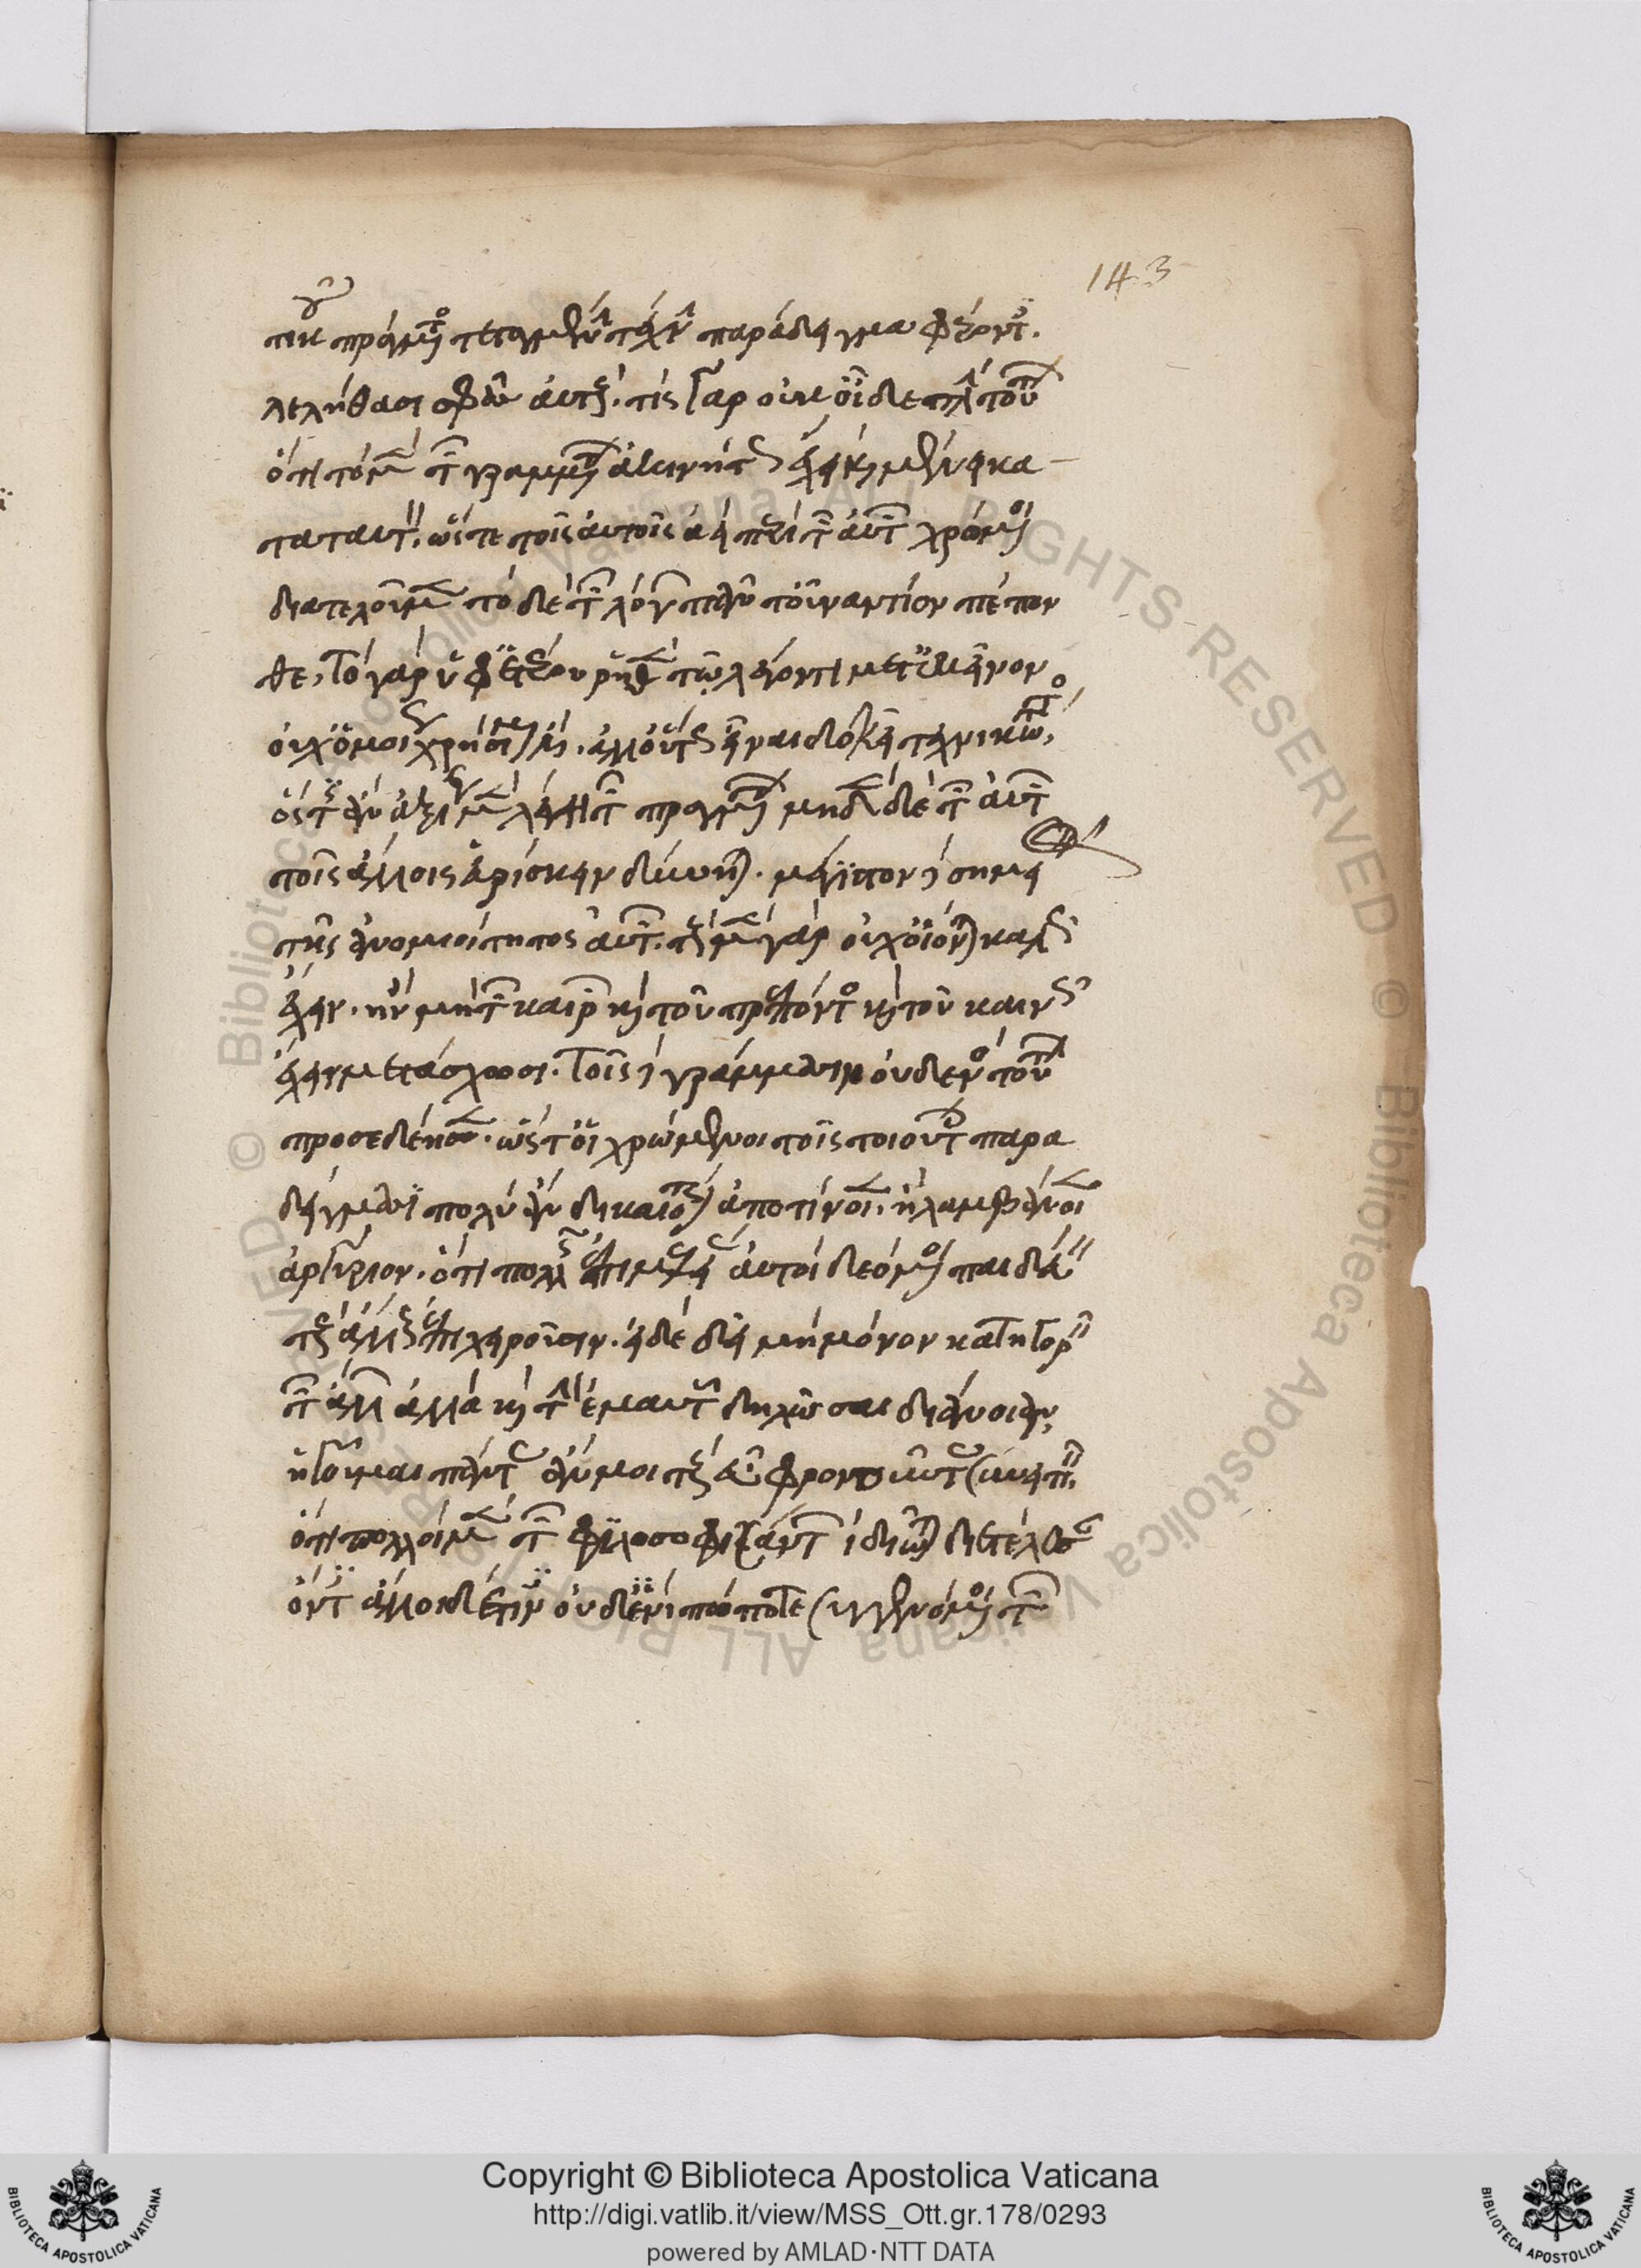 τικοῦ πράγματος τεταγμένην τέχνην παράδειγμα φέροντες.
λελήθασι σφᾶς αὐτούς. τίς γὰρ οὐκ οἶδε πλὴν τούτων
ὅτι τὸ μὲν τῶν γραμμάτων ἀκινήτως ἔχει καὶ μένει κα-
τὰ ταυτόν. ὥστε τοῖς αὐτοῖς ἀεὶ περὶ τῶν αὐτῶν χρώμενοι
διατελοῦμεν τὸ δὲ τῶν λόγων πᾶν τοὐναντίον πέπον
θε, τὸ γὰρ ὑφ' ἑτέρου ῥηθὲν τῷ λέγοντι μετ' ἐκεῖνον
οὐχ ὁμοίως χρήσιμόν ἐστι. ἀλλ' οὗτος εἶναι δοκεῖ τεχνικώτατος,
ὅστις ἂν ἀξίως μὲν λέγῃ τῶν πραγμάτων μηδὲν δὲ τῶν αὐτῶν
τοῖς ἄλλοις εὑρίσκειν δύνηται. μέγιστον δὲ σημεῖον
τῆς ἀνομοιότητος αὐτῶν. τοὺς μὲν γὰρ οὐχ οἷόν τε καλῶς
ἔχειν. ἢν μὴ τῶν καιρῶν καὶ τοῦ πρεπόντως καὶ τοῦ καινῶς
ἔχειν μετάσχωσι. τοῖς δὲ γράμμασιν οὐδενὸς τούτων
προσεδέησεν. ὥσθ' οἱ χρώμενοι τοῖς τοιούτοις παρα
δείγμασι πολὺ ἂν δικαιότερον ἀποτίνοιεν. ἢ λαμβάνοιεν
ἀργύριον. ὅτι πολλῆς ἐπιμελείας αὐτοὶ δεόμενοι παιδεύειν
τοὺς ἄλλους ἐπιχειροῦσιν. εἰ δὲ δεῖ μὴ μόνον κατηγορεῖν
τῶν ἄλλων ἀλλὰ καὶ τὴν ἐμαυτοῦ δηλῶσαι διάνοιαν,
ἡγοῦμαι πάντας ἄν μοι τοὺς εὖ φρονοῦντας συνειπεῖν.
ὅτι πολλοὶ μὲν τῶν φιλοσοφησάντων ἰδιῶται διετέλεσαν
ὄντες ἄλλοι δέ τινες οὐδενὶ πώποτε συγγενόμενοι τῶν
143
Copyright © Biblioteca Apostolica Vaticana
http://digi.vatlib.it/view/MSS_Ott.gr.178/0293
powered by AMLAD·NTT DATA